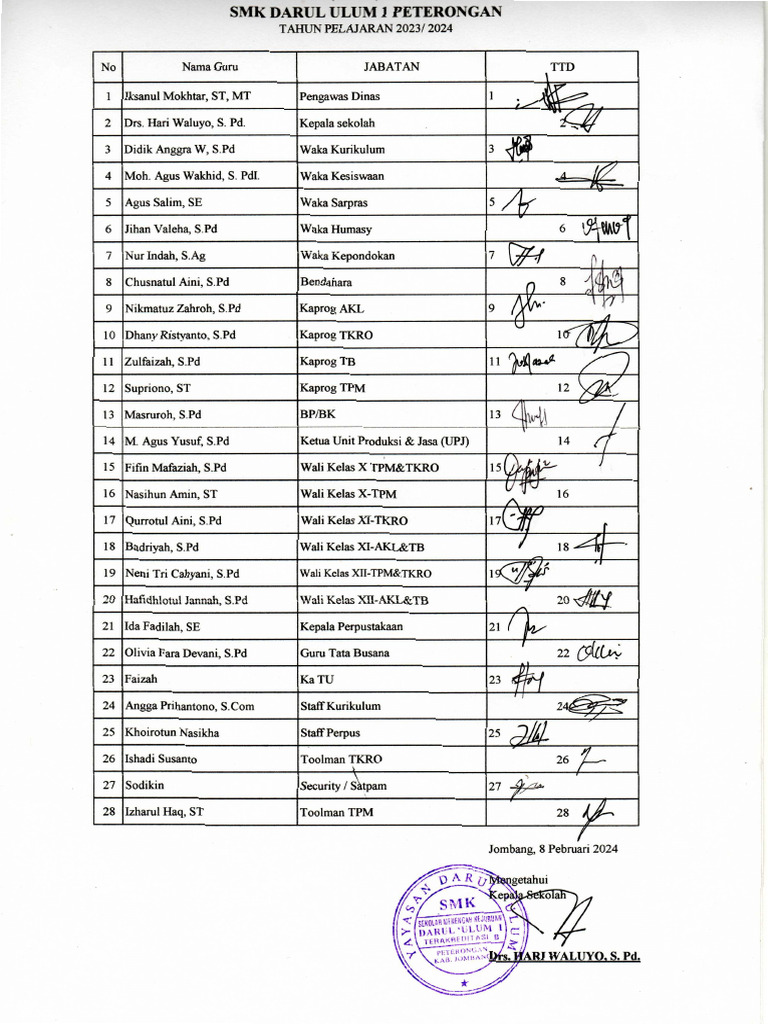 SMK DARUL ULUM 1 PETERONGAN
TAHUN PELAJARAN 2023/ 2024
No Nama Guru JABATAN TTD
1 Iksanul Mokhtar, ST, MT Pengawas Dinas 1
2 Drs. Hari Waluyo, S. Pd. Kepala sekolah 2
3 Didik Anggra W, S.Pd Waka Kurikulum 3
4 Moh. Agus Wakhid, S. PdI. Waka Kesiswaan 4
5 Agus Salim, SE Waka Sarpras 5
6 Jihan Valeha, S.Pd Waka Humasy 6
7 Nur Indah, S.Ag Waka Kepondokan 7
8 Chusnatul Aini, S.Pd Bendahara 8
9 Nikmatuz Zahroh, S.Pd Kaprog AKL 9
10 Dhany Ristyanto, S.Pd Kaprog TKRO 10
11 Zulfaizah, S.Pd Kaprog TB 11
12 Supriono, ST Kaprog TPM 12
13 Masruroh, S.Pd BP/BK 13
14 M. Agus Yusuf, S.Pd Ketua Unit Produksi & Jasa (UPJ) 14
15 Fifin Mafaziah, S.Pd Wali Kelas X TPM&TKRO 15
16 Nasihun Amin, ST Wali Kelas X-TPM 16
17 Qurrotul Aini, S.Pd Wali Kelas XI-TKRO 17
18 Badriyah, S.Pd Wali Kelas XI-AKL&TB 18
19 Neni Tri Cahyani, S.Pd Wali Kelas XII-TPM&TKRO 19
20 Hafidhlotul Jannah, S.Pd Wali Kelas XII-AKL&TB 20
21 Ida Fadilah, SE Kepala Perpustakaan 21
22 Olivia Fara Devani, S.Pd Guru Tata Busana 22
23 Faizah Ka TU 23
24 Angga Prihantono, S.Com Staff Kurikulum 24
25 Khoirotun Nasikha Staff Perpus 25
26 Ishadi Susanto Toolman TKRO 26
27 Sodikin Security / Satpam 27
28 Izharul Haq, ST Toolman TPM 28
Jombang, 8 Pebruari 2024
Mengetahui
Kepala Sekolah
Drs. HARI WALUYO, S. Pd.
YAYASAN DARUL ULUM
SMK
SEKOLAH MENENGAH KEJURUAN
DARUL 'ULUM 1
TERAKREDITASI B
PETERONGAN
KAB. JOMBANG